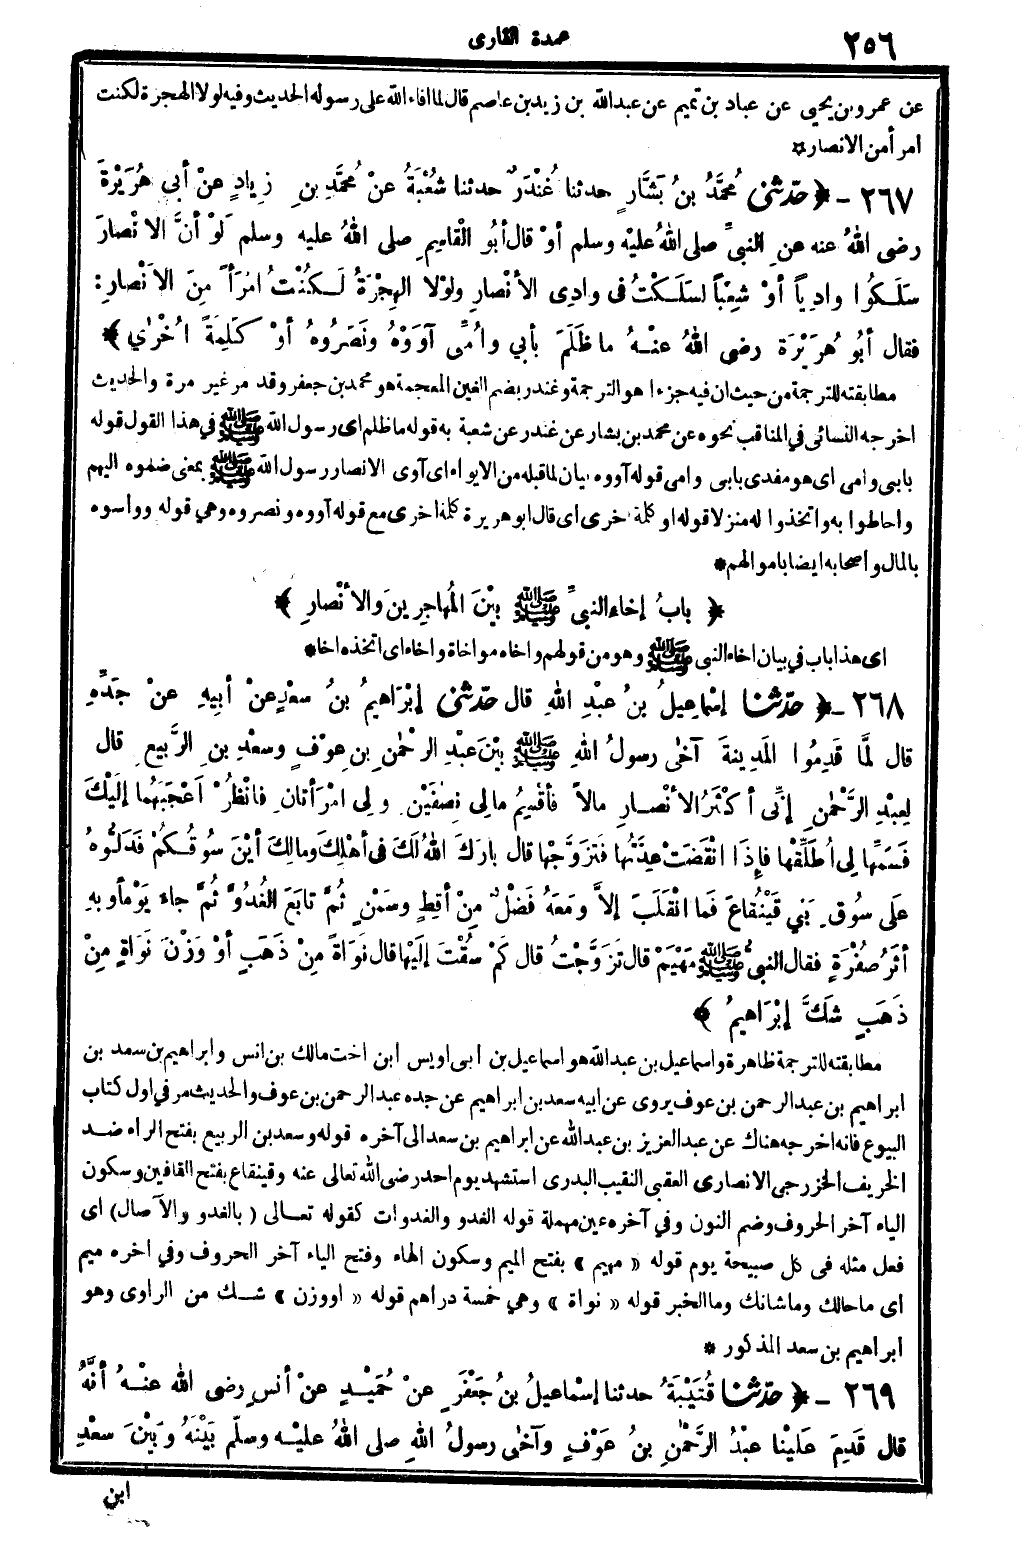 ٢٥٦
عمدة القارى
عن عمرو بن يحيى عن عباد بن تميم عن عبدالله بن زيد بن عاصم قال لما افاء الله على رسوله الحديث وفيه لولا الهجرة لكنت
امرأ من الانصار *
٢٦٧ - ﴿ حَدّثنى مُحَمَّدُ بنُ بَشَّارٍ حدثنا غُنْدَرٌ حدثنا شُعْبَةُ عنْ مُحَمَّدِ بنِ زِيادٍ عنْ أبى هُرَيْرَةَ
رضى اللهُ عنه عنِ النبىِّ صلى اللهُ عليْه وسلم أوْ قال أبُو الْقاسِمِ صلى اللهُ عليه وسلم لَوْ أنَّ الانْصارَ
سَلَـكُوا وادِياً أوْ شِعْباً لسَلَـكْتُ فى وادِى الأنْصارِ ولَوْلا الهِجْرَةُ لَـكُنْتُ امْرَأً مِنَ الانْصارِ :
فقال أبُو هُرَيْرَةَ رضى اللهُ عنْـهُ ماظَلَمَ بأبِي وأُمِّى آوَوْهُ ونَصَرُوهُ أوْ كَلِمَةً أُخْرٰى ﴾
مطابقته للترجمة من حيث ان فيه جزءا هو الترجمة وغندر بضم الغين المعجمة هو محمد بن جعفر وقد مر غير مرة والحديث
اخرجه النسائى فى المناقب نحوه عن محمد بن بشار عن غندر عن شعبة به قوله ماظلم اى رسول الله ﷺ فى هذا القول قوله
بابى وامى اى هو مفدى بابى وامى قوله آووه بيان لما قبله من الايواء اى آوى الانصار رسول الله ﷺ بمعنى ضموه اليهم
واحاطوا به واتخذوا له منزلا قوله او كلمة اخرى اى قال ابو هريرة كلمة اخرى مع قوله آووه ونصروه وهى قوله وواسوه
بالمال واصحابه ايضا باموالهم *
﴿ بابُ إخاءِ النبىِّ ﷺ بيْنَ المُهاجِرِينَ والأنْصارِ ﴾
اى هذا باب فى بيان اخاء النبى ﷺ وهو من قولهم واخاه مواخاة واخاء اى اتخذه اخا *
٢٦٨ - ﴿ حَدّثنا إسْماعِيلُ بنُ عبْدِ اللهِ قال حَدّثنى إبْرَاهِيمُ بنُ سعْدٍ عنْ أبِيهِ عنْ جَدِّهِ
قال لَمَّا قَدِمُوا المَدِينَةَ آخٰى رسولُ اللهِ ﷺ بيْنَ عبْدِ الرَّحْمٰنِ بنِ عوْفٍ وسعْدِ بنِ الرَّبِيعِ قال
لِعبْدِ الرَّحْمٰنِ إنِّى أكْثَرُ الأنْصارِ مالاً فأقْسِمُ مالِى نِصْفَيْنِ ولِى امْرَأتانِ فانْظُرْ أعْجَبَهُما إلَيْكَ
فَسَمِّها لِى أُطَلِّقْها فإذَا انْقَضَتْ عِدَّتُها فتَزَوَّجْها قال بارَكَ اللهُ لَكَ فى أهْلِكَ ومالِكَ أيْنَ سُوقُـكُمْ فَدَلُّوهُ
علَى سُوقِ بَنِي قَيْنُقاعَ فَما انْقَلَبَ إلاَّ ومَعَهُ فَضْلٌ مِنْ أقِطٍ وسَمْنٍ ثُمَّ تابَعَ الغُدُوَّ ثُمَّ جاءَ يَوْماً وبِهِ
أثَرُ صُفْرَةٍ فقال النبىُّ ﷺ مَهْيَمْ قال تزَوَّجْتُ قال كَمْ سُقْتَ إلَيْها قال نَوَاةً مِنْ ذَهَبٍ أوْ وَزْنَ نَوَاةٍ مِنْ
ذَهَبٍ شَكَّ إبْرَاهِيمُ ﴾
مطابقته للترجمة ظاهرة واسماعيل بن عبدالله هو اسماعيل بن ابى اويس ابن اخت مالك بن انس وابراهيم بن سعد بن
ابراهيم بن عبدالرحمن بن عوف يروى عن ابيه سعد بن ابراهيم عن جده عبد الرحمن بن عوف والحديث مر فى اول كتاب
البيوع فانه اخرجه هناك عن عبدالعزيز بن عبدالله عن ابراهيم بن سعد الى آخره قوله وسعد بن الربيع بفتح الراء ضد
الخريف الخزرجى الانصارى العقبى النقيب البدرى استشهد يوم احد رضى الله تعالى عنه وقينقاع بفتح القافين وسكون
الياء آخر الحروف وضم النون وفى آخره عين مهملة قوله الغدو والغدوات كقوله تعـالى ( بالغدو والآصال ) اى
فعل مثله فى كل صبيحة يوم قوله « مهيم » بفتح الميم وسكون الهاء وفتح الياء آخر الحروف وفى اخره ميم
اى ماحالك وماشانك وماالخبر قوله « نواة » وهى خمسة دراهم قوله « اووزن » شـك من الراوى وهو
ابراهيم بن سعد المذكور *
٢٦٩ - ﴿ حَدّثنا قُتَيْبَةُ حدثنا إسْماعِيلُ بنُ جَعْفَرٍ عنْ حُمَيْـدٍ عنْ أنَسٍ رضى الله عنْـهُ أنَّهُ
قال قَدِمَ علَيْنا عبْدُ الرَّحْمٰنِ بنُ عَوْفٍ وآخٰى رسولُ اللهِ صلى اللهُ عليْـه وسلّم بَيْنَهُ وبَيْنَ سعْدِ
ابن